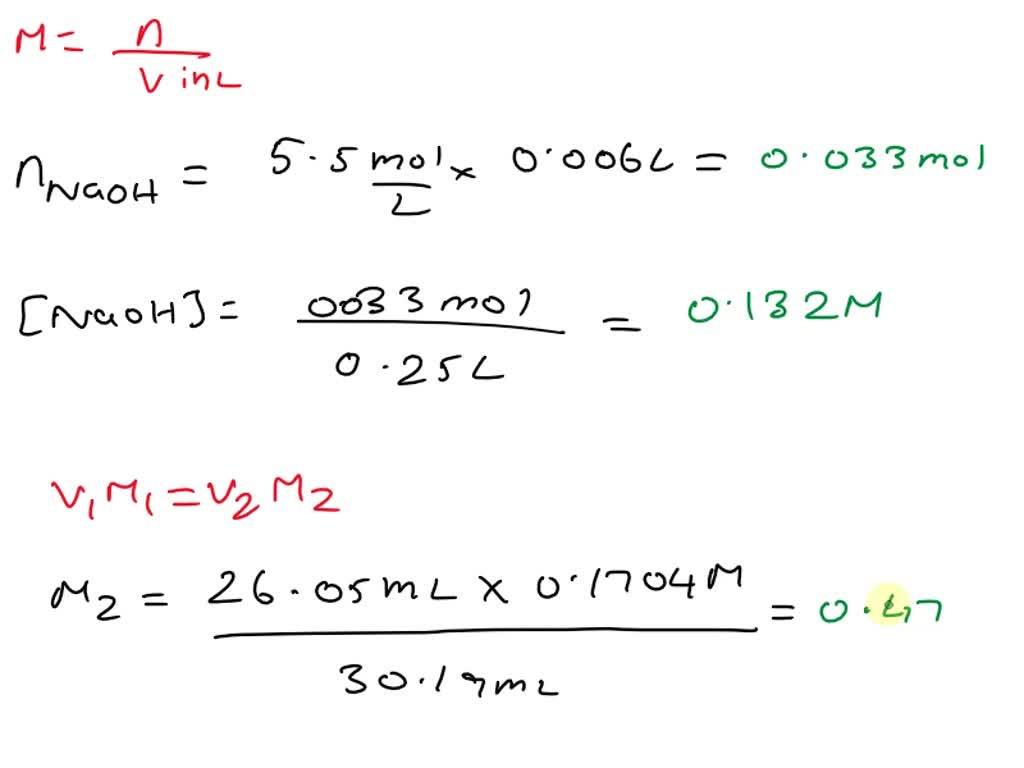 M = n / V in L
nNaOH = 5.5 mol/L × 0.006L = 0.033 mol
[NaOH] = 0033 mol / 0.25L = 0.132M
V1M1 = V2M2
M2 = 26.05mL × 0.1704M / 30.19mL = 0.